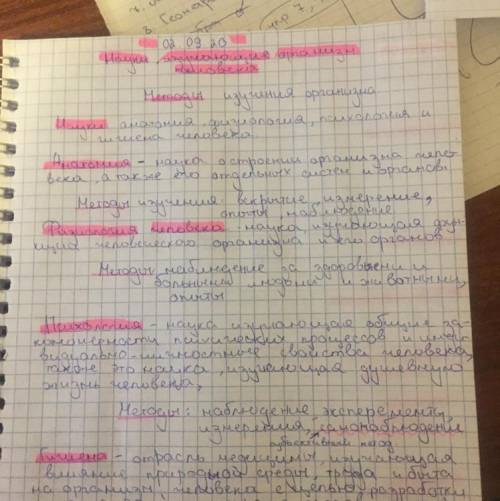 3. Геонар
02.09.20
Науки, изучающие организм
человека
Методы изучения организма
Науки: анатомия, физиология, психология и
гигиена человека.
Анатомия - наука о строении организма чело
века, а также его отдельных систем и органов.
Методы изучения: вскрытие, измерение,
опыты, наблюдение
Физиология человека - наука, изучающая фун
кции человеческого организма и его органов
Методы: наблюдение за здоровыми и
больными людьми и животными,
опыты
Психология - наука изучающая общие за-
кономерности психических процессов и инди
видуально-личностные свойства человека,
также это наука, изучающая душевную
жизнь человека,
Методы: наблюдение, эксперементы,
измерения, самонаблюдение
субъективный метод
Гигиена - отрасль медицины изучающая
влияние природной среды, труда и быта
на организм человека с целью разработки